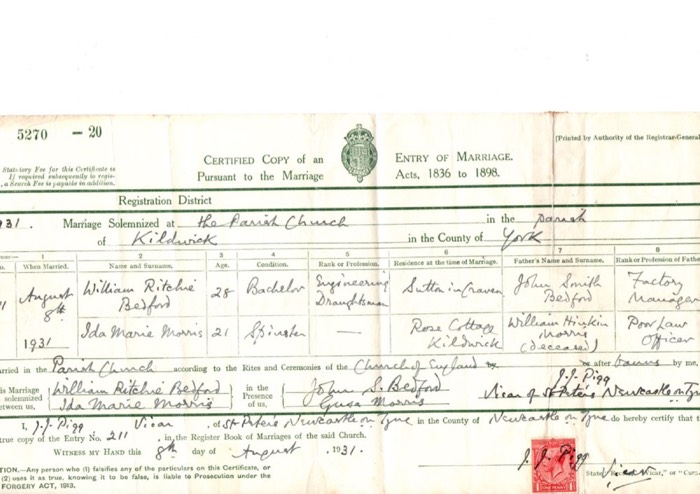 5270 — 20
[Printed by Authority of the Registrar-General
Statutory Fee for this Certificate is
If required subsequently to regis-
, a Search Fee is payable in addition.
CERTIFIED COPY of an ENTRY OF MARRIAGE.
Pursuant to the Marriage Acts, 1836 to 1898.
Registration District
931. Marriage Solemnized at the Parish Church in the parish
of Kildwick in the County of York
1 2 3 4 5 6 7 8
When Married. Name and Surname. Age. Condition. Rank or Profession. Residence at the time of Marriage. Father's Name and Surname. Rank or Profession of Father
11 August 8th 1931 William Ritchie Bedford 28 Bachelor Engineering Draughtsman Sutton in Craven John Smith Bedford Factory Manager
Ida Marie Morris 21 Spinster — Rose Cottage Kildwick William Morris (deceased) Poor Law Officer
arried in the Parish Church according to the Rites and Ceremonies of the Church of England after banns by me,
J.J. Pigg
his Marriage solemnized between us, William Ritchie Bedford in the Presence of us, John S. Bedford Vicar of St Peters Newcastle on Tyne
Ida Marie Morris Morris
I, J.J. Pigg Vicar, of St Peters Newcastle on Tyne in the County of Newcastle on Tyne do hereby certify that t
true copy of the Entry No. 211, in the Register Book of Marriages of the said Church.
WITNESS MY HAND this 8th day of August, 1931.
J. J. Pigg Vicar
TION.—Any person who (1) falsifies any of the particulars on this Certificate, or
(2) uses it as true, knowing it to be false, is liable to Prosecution under the
FORGERY ACT, 1913.